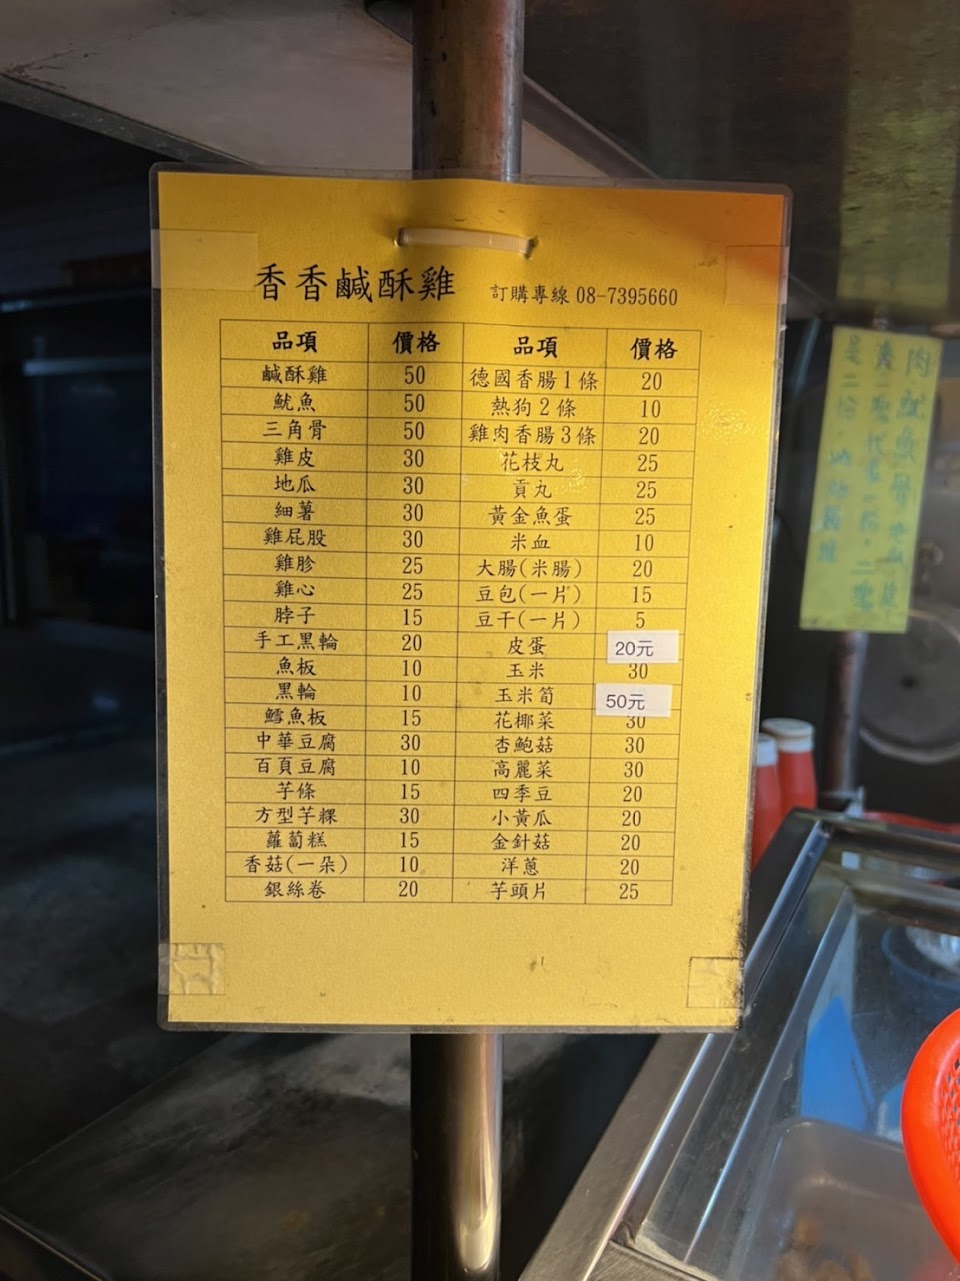 香香鹹酥雞 訂購專線 08-7395660
品項 價格 品項 價格
鹹酥雞 50 德國香腸1條 20
魷魚 50 熱狗2條 10
三角骨 50 雞肉香腸3條 20
雞皮 30 花枝丸 25
地瓜 30 貢丸 25
細薯 30 黃金魚蛋 25
雞屁股 30 米血 10
雞胗 25 大腸(米腸) 20
雞心 25 豆包(一片) 15
脖子 15 豆干(一片) 5
手工黑輪 20 皮蛋 20元
魚板 10 玉米 30
黑輪 10 玉米筍 50元
鱈魚板 15 花椰菜 30
中華豆腐 30 杏鮑菇 30
百頁豆腐 10 高麗菜 30
芋條 15 四季豆 20
方型芋粿 30 小黃瓜 20
蘿蔔糕 15 金針菇 20
香菇(一朵) 10 洋蔥 20
銀絲卷 20 芋頭片 25